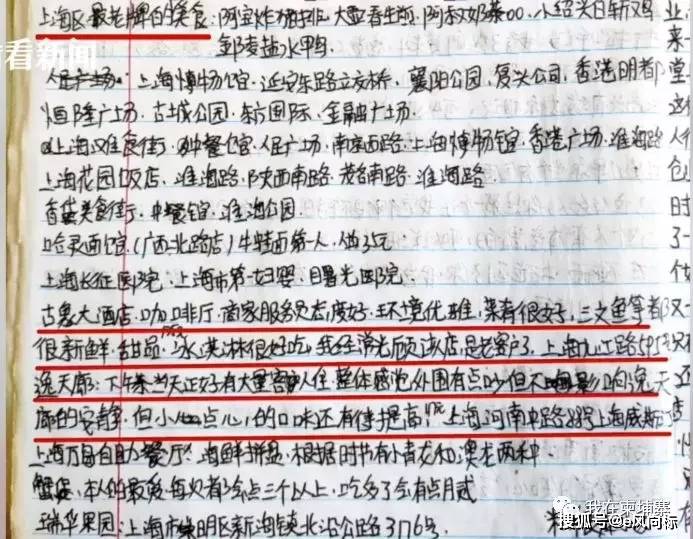 上海区最老牌的美食:阿宝炸猪排.大壶春生煎.阿叔奶茶00.小绍兴白斩鸡
邹凌盐水鸭
人民广场.上海博物馆.延安东路立交桥.襄阳公园.复兴公司.香港明都
恒隆广场.古城公园.东方国际.金融广场.
上海美食街.中餐馆.人民广场.南京西路.上海博物馆.香港广场.淮海路
上海花园饭店.淮海路.陕西南路.茂名南路.淮海路.
美食街.中餐馆.淮海公园.
哈灵面馆.(广西北路店)牛蛙面第一人.
上海长征医院.上海市第一妇婴.曙光医院.
古象大酒店.咖啡厅.商家服务员态度好.环境优雅,菜肴很好,三文鱼等都
很新鲜.甜品、冰淇淋很好吃,我经常光顾该店,是老客户了.上海九江路595号
逸天廊:下午茶当天正好有大量客人入住.整体感觉外围有点吵但不影响逸天
廊的安静.但小点心的口味还有待提高.上海河南中路 上海威斯
上海万 自助餐厅:海鲜拼盘.根据时节有小青龙和澳龙两种
蟹 .本人的最爱.每次都会点三个以上.吃多了会有点月咸
瑞华果园:上海市崇明区新海镇北沿公路3176号.
看新闻
我在柬埔寨
搜狐号@
业
来
堂
时
了